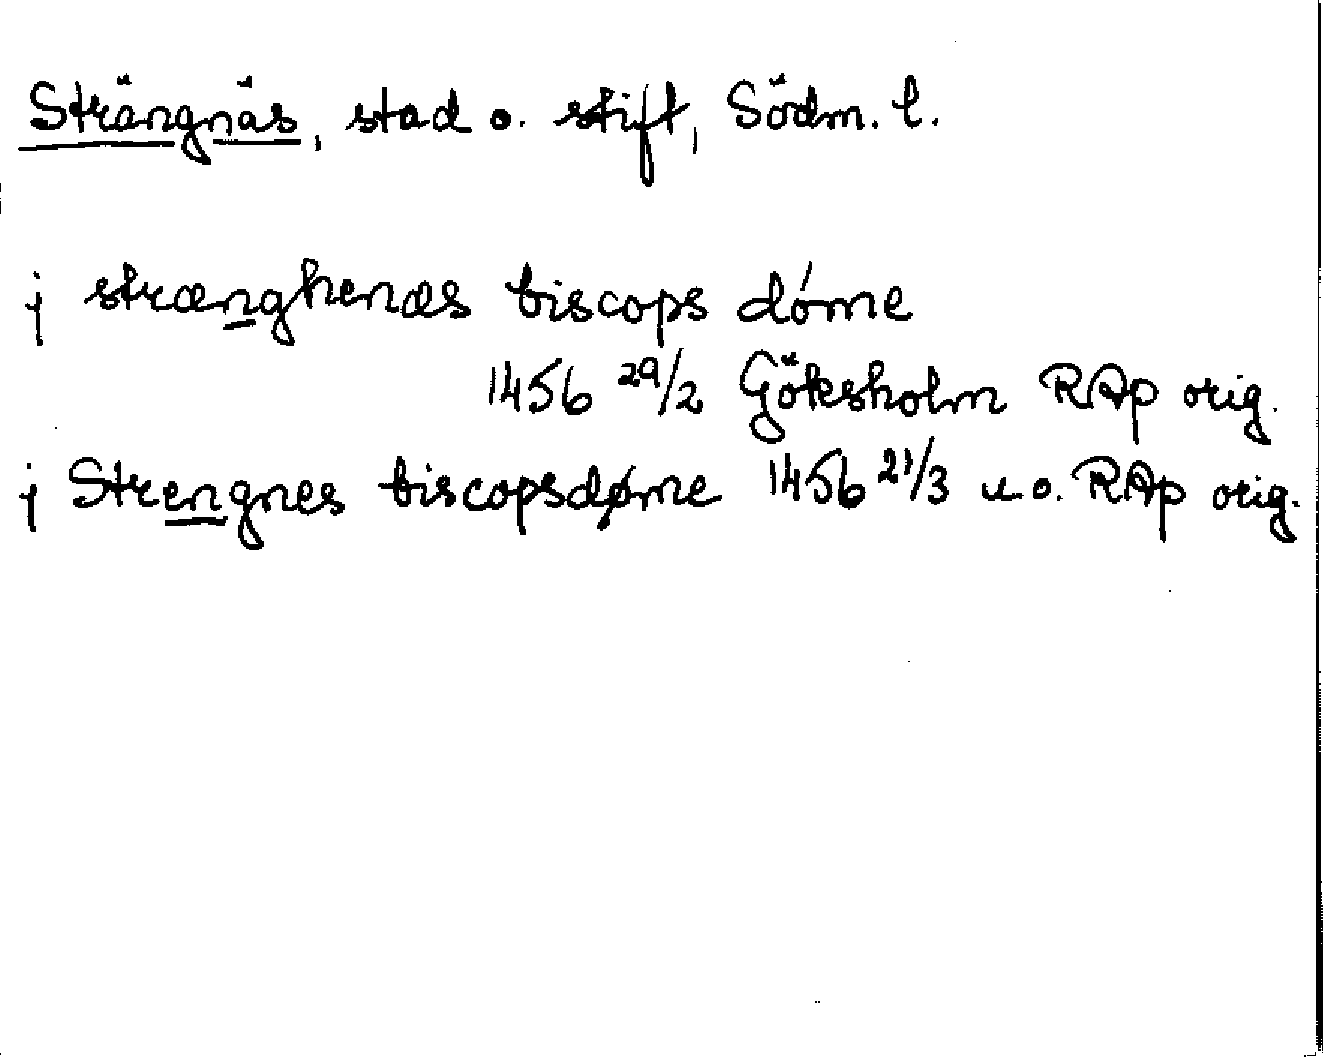 Strängnäs, stad o. stift, Södm. l.
j strænghenæs biscops dóme
1456 29/2 Göksholm RAp orig.
j Strengnes biscopsdøme 1456 21/3 u.o. RAp orig.